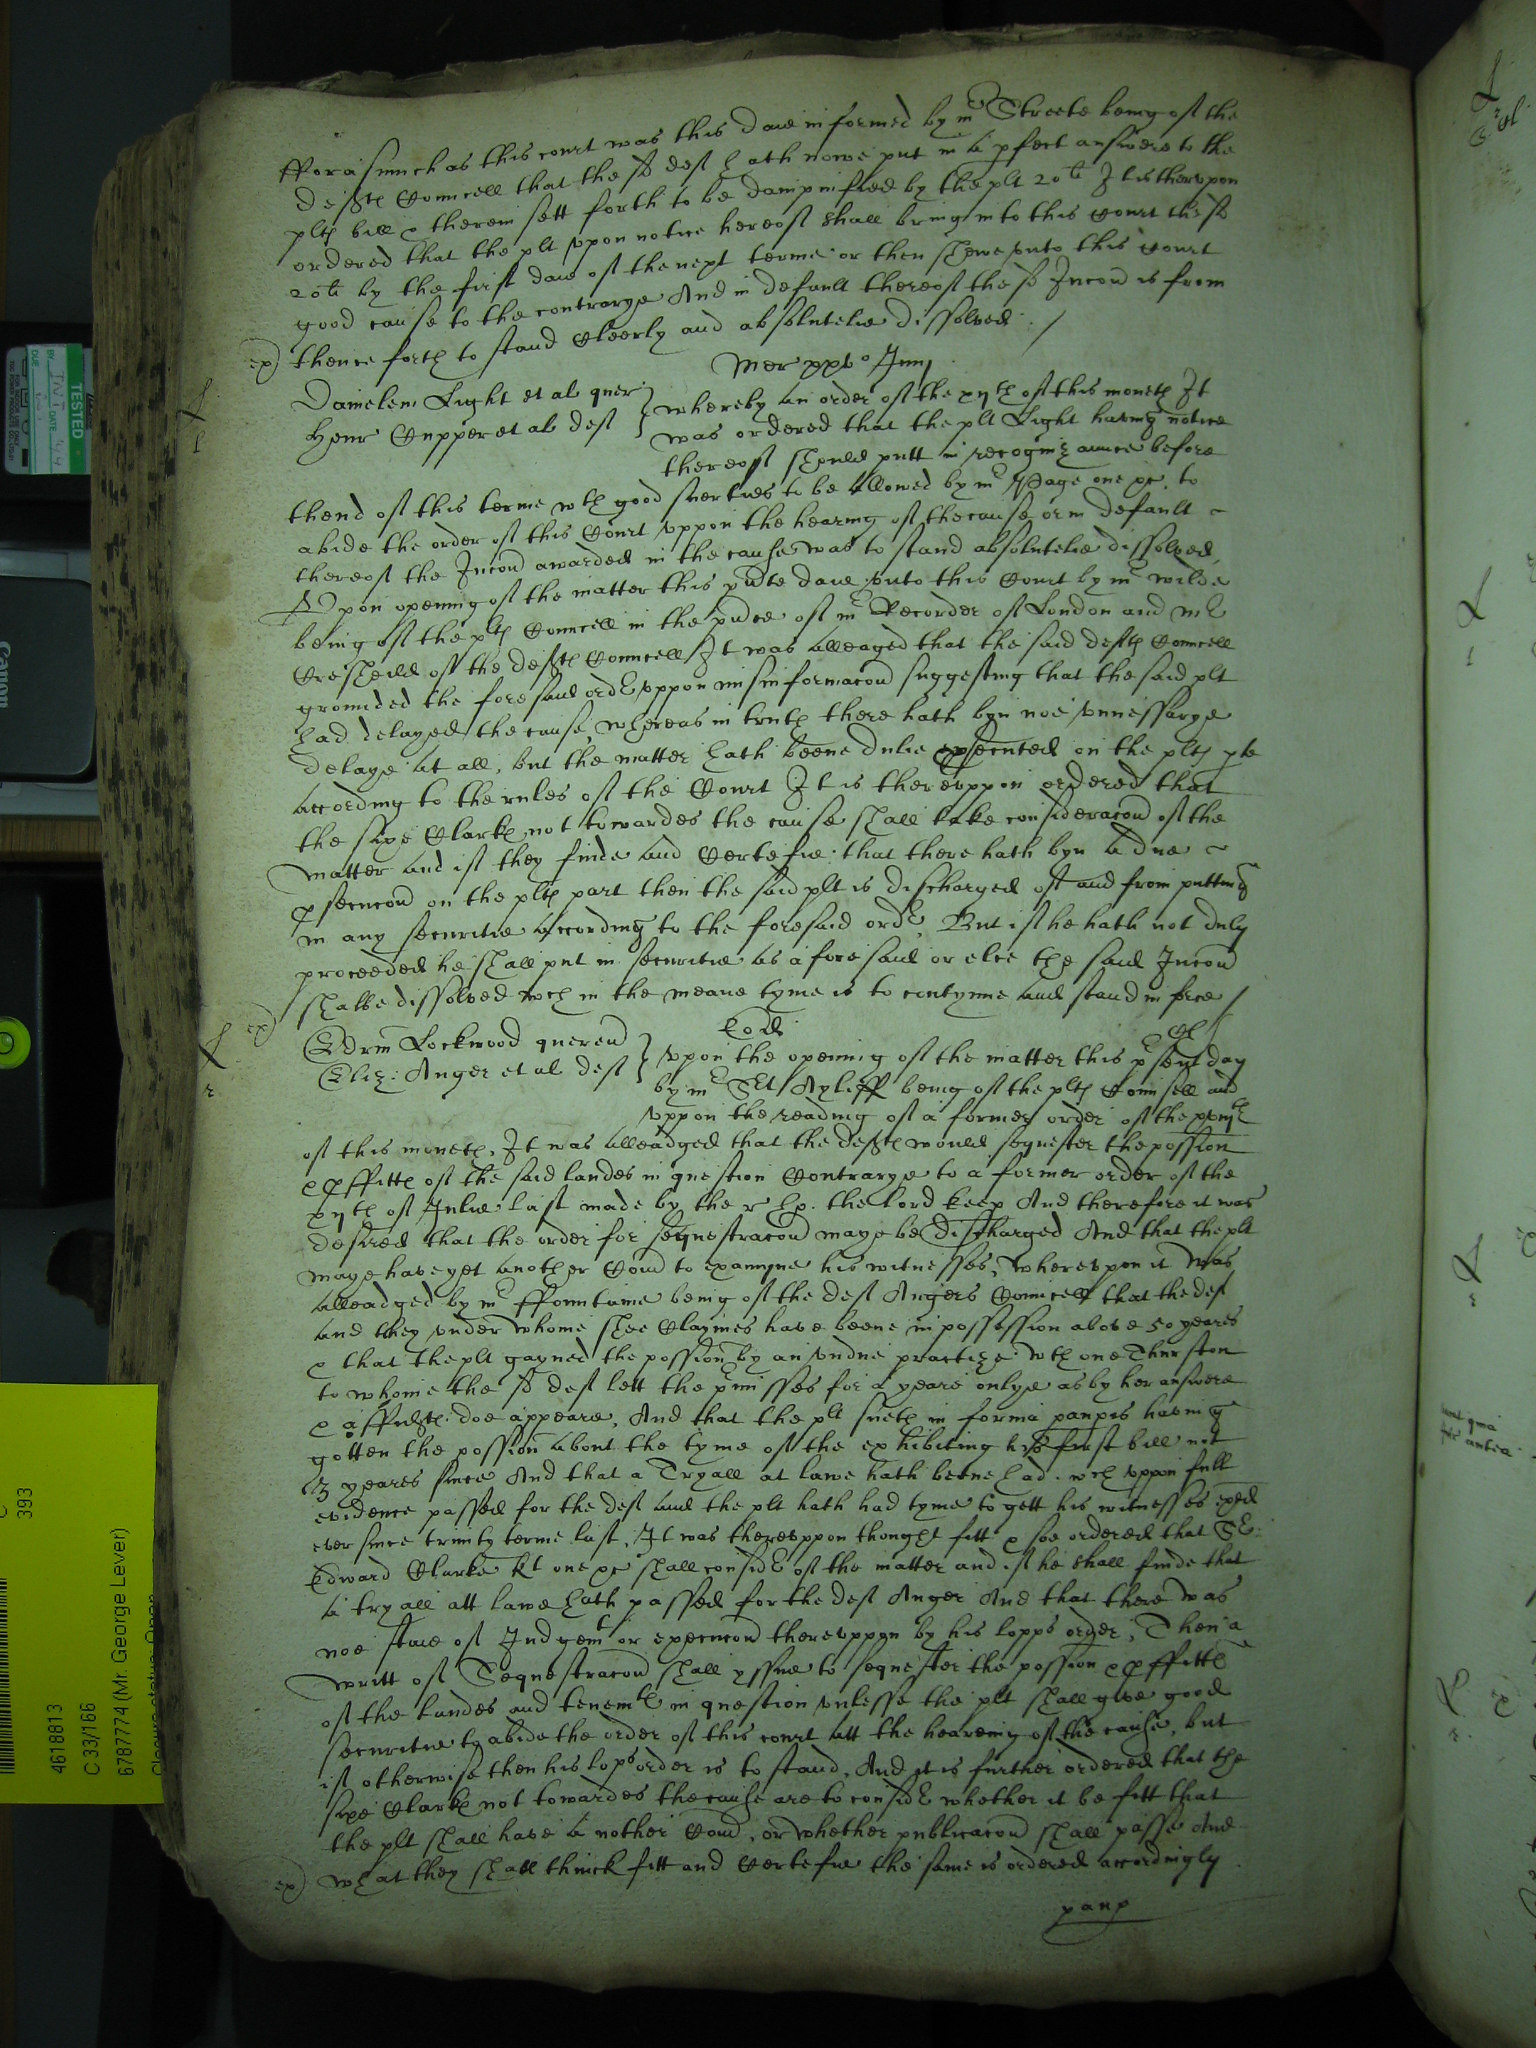 fforasmuch as this court was this daie informed by mr Streete being of the
deftes Councell that the sd deft hath nowe put in a perfect answere to the
pltes bill & therein sett forth to be dampnified by the plt 20li It is therupon
ordered that the plt vppon notice hereof shall bring into this Court the sd
20li by the first daie of the next terme or then shewe vnto this Court
good cause to the contrarye And in default thereof the sd Iniuncion is from
ex) thenceforth to stand Cleerly and absolutelie dissolved /
Mer xxvo Junij
Danielem Light et al quer
Henr Cupper et al def
whereby an order of the xijth of this moneth It
was ordered that the plt Light having notice
thereof should putt in recognizaunce before
thend of this terme wth good suerties to be allowed by mr Page one &c. to
abide the order of this Court vppon the hearing of the cause or in default
thereof the Iniuncion awarded in the cause was to stand absolutelie dissolved
Vpon opening of the matter this pnte daie vnto this Court by mr wilde
being of the pltes Councell in the pnce of mr Recorder of London and mr
Cresheld of the deftes Councell It was alleaged that the said deftes Councell
grounded the foresaid order vppon misinformacon suggesting that the said plt
had delayed the cause, whereas in truth there hath byn noe vnnessarye
delaye at all, but the matter hath beene dulie prosecuted on the pltes pte
according to the rules of the Court It is therevppon ordered that
the sixe Clarkes not towardes the cause shall take consideracon of the
matter and if they finde and Certefie that there hath byn a due
prosecucon on the pltes part then the said plt is discharged of and from putting
in any securitie according to the foresaid order, But if he hath not duly
proceeded he shall put in securitie as aforesaid or else the said Iniuncion
ex) shalbe dissolved wch in the meane tyme is to contynue and stand in force /
Eod
Edrm Lockwood querent
Eliz: Anger et al def
vpon the opening of the matter this present day
by mr Sert Ayliff being of the pltes Counsell and
vppon the reading of a former order of the xviijth
of this moneth, It was alleadged that the deftes would sequester the possion
& proffittes of the said landes in question Contrarye to a former order of the
xijth of Julie last made by the r ho. the lord keep And therefore it was
desired that the order for sequestracon maye be discharged And that the plt
maye have yet another Com to examyne his witnesses, Wherevpon it was
alleadged by mr ffountaine being of the deft Angers Councell that the deft
and they vnder whome shee Claymes have beene in possession above 50 yeares
& that the plt gayned the possion by an vndue practize wth one Thurston
to whome the sd deft lett the premisses for a yeare onlye as by her answere
& affidts doe appeare, And that the plt sueth in forma paupis having
gotten the possion about the tyme of the exhibiting his first bill not
3 yeares since And that a Tryall at lawe hath beene had wch vppon full
evidence passed for the deft and the plt hath had tyme to gett his witnesses exed
ever since trinity terme last, It was therevppon thought fitt & soe ordered that Sr
Edward Clarke kt one &c shall consider of the matter and if he shall finde that
a tryall att lawe hath passed for the deft Anger And that there was
noe staie of Judgemt or execucon therevppon by his lopps order, Then a
writt of Sequestracon shall yssue to sequester the possion & proffittes
of the landes and tenemtes in question vnlesse the plt shall give good
securitie to abide the order of this court att the heareing of the cause, but
if otherwise then his lopps order is to stand, And it is further ordered that the
sixe Clarkes not towardes the cause are to consider whether it be fitt that
the plt shall have a nother Com, or whether publicacon shall passe And
ex) what they shall thinck fitt and Certefie the same is ordered accordingly
paup
TESTED
Canon
393
4618813
C 33/166
6787774 (Mr. George Lever)